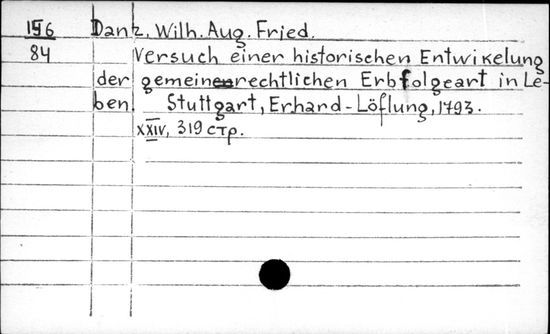 156 Danz, Wilh. Aug. Fried.
84 Versuch einer historischen Entwikelung
der gemeinrechtlichen Erbfolgeart in Le-
ben. Stuttgart, Erhard-Löflung, 1793.
XXIV, 319 стр.